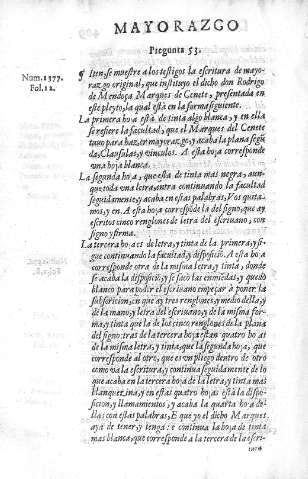 MAYORAZGO
Pregunta 53.
Num. 1377.
Fol. 12.
¶ Iten, se muestre a los testigos la escritura de mayo-
razgo original, que instituyo el dicho don Rodrigo
de Mendoça Marques de Cenete, presentada en
este pleyto, la qual està en la forma siguiente.
La primera hoja està de tinta algo blanca, y en ella
se refiere la facultad, que el Marques del Cenete
tuuo para hazer mayorazgo, y acaba la plana segũ
da, Clausulas, y vinculos. A esta hoja corresponde
vna hoja blanca.
La segunda hoja, que està de tinta mas negra, aun-
que toda vna letra, entra continuando la facultad
seguidamente, y acaba en estas palabras, Vos quita-
mos, y en. A esta hoja correspõde la del signo, que ay
escritos cinco renglones de letra del escriuano, con
signo y firma.
La tercera hoja es de letra, y tinta de la primera, y si-
gue continuando la facultad, y disposiciõ. A esta hoja
corresponde otra de la misma letra, y tinta, donde
se acaba la disposiciõ, y se saluã las emiendas, y quedò
blanco para poder el escriuano empeçar à poner la
subscricion, en que ay tres renglones, y medio della, y
de la mano, y letra del escriuano, y de la misma for-
ma, y tinta que la de los cinco renglones de la plana
del signo: tras de la tercera hoja estàn quatro hojas
de la misma letra, y tinta, que la segunda hoja, que
corresponde al otro, que es vn pliego dentro de otro
como va la escritura, y continua seguidamente de lo
que acaba en la tercera hoja de la letra, y tinta mas
blanquezina, y en estas quatro hojas està la dispo-
sicion, llamamientos, y acaba la quarta hoja de
llas con estas palabras, E que yo el dicho Marques
aya de tener, y tenga: è continua la hoja de tinta
mas blanca, que corresponde a la tercera de la escri-